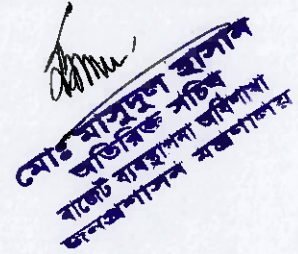 মোঃ মাসুদুল হাসান
অতিরিক্ত সচিব
বাজেট ব্যবস্থাপনা অধিশাখা
জনপ্রশাসন মন্ত্রণালয়